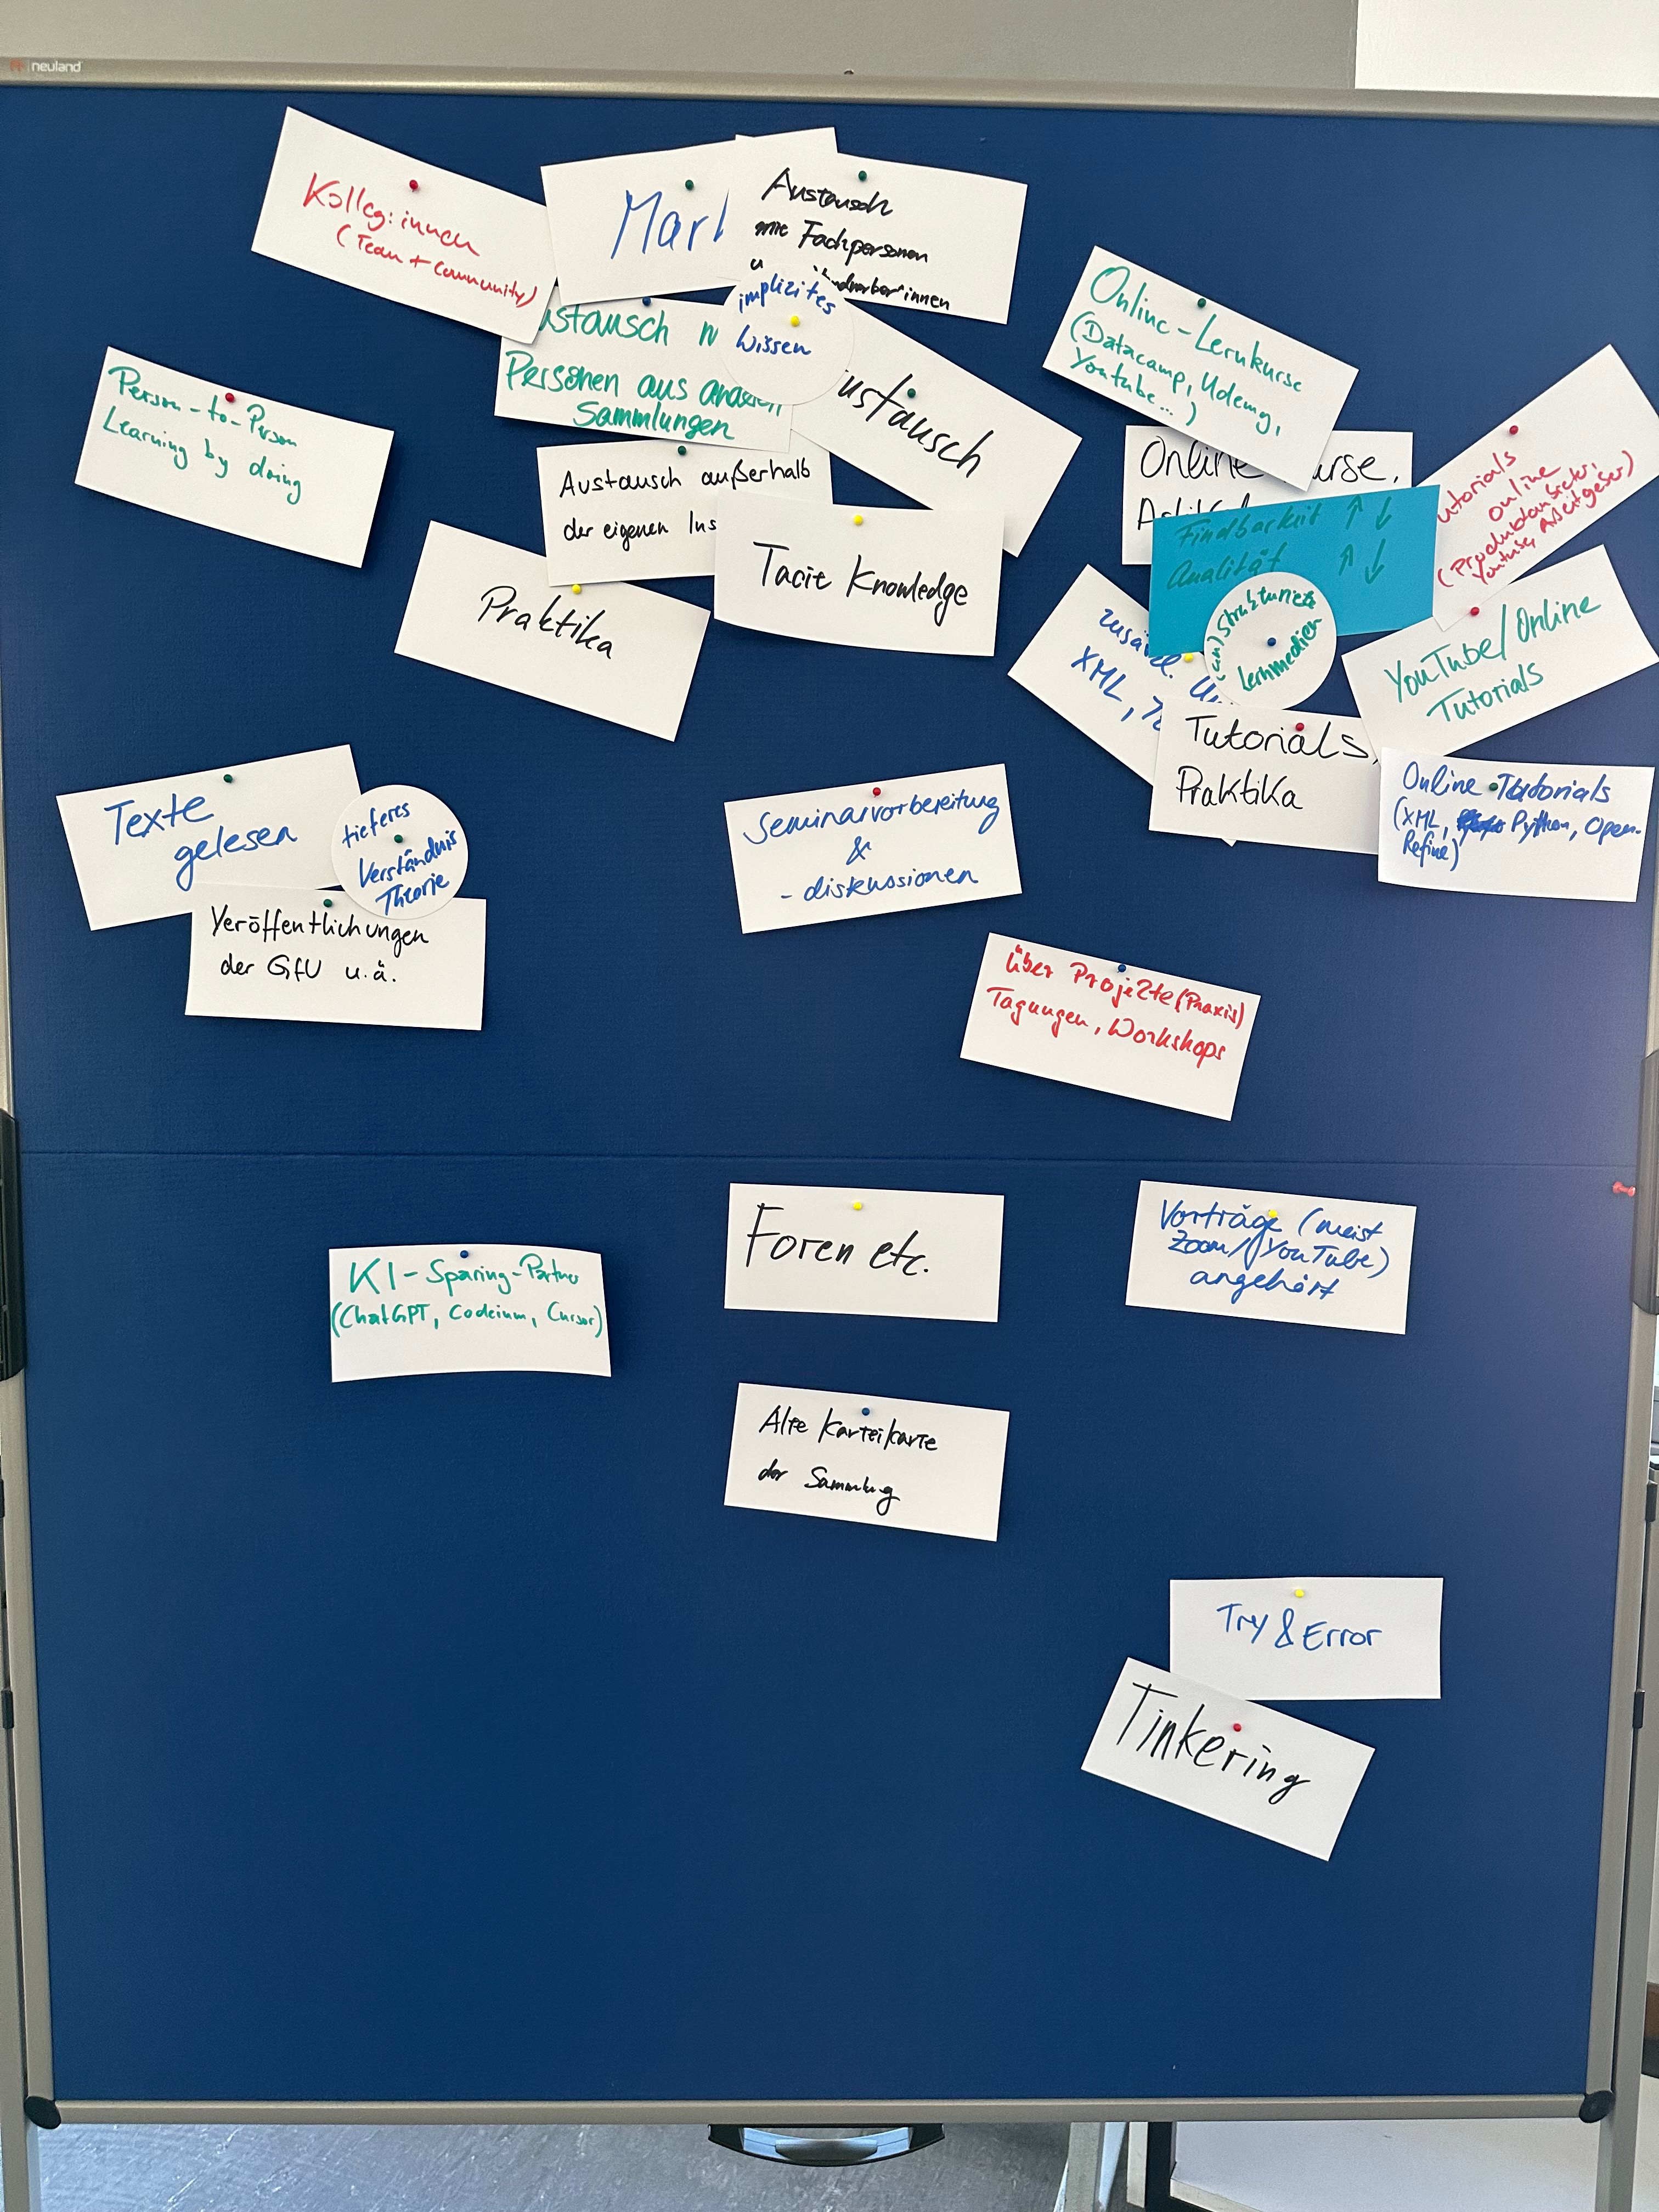 neuland
Kolleg:innen
(Team + Community)
Mar
Austausch
mit Fachpersonen
u
implizites
Wissen
ustausch
Personen aus anderen
Sammlungen
ustausch
Person-to-Person
Learning by doing
Austausch außerhalb
der eigenen Ins
Tacit Knowledge
Praktika
Online-Lernkurse
(Datacamp, Udemy,
Youtube...)
Online urse,
Findbarkeit ↑ ↓
Qualität ↑ ↓
(un)strukturierte
Lernmedien
utorials
online
YouTube, Arbeitgeber)
YouTube/Online
Tutorials
XML,
Tutorials,
Praktika
Online Tutorials
(XML, Python, Open-
Refine)
Texte
gelesen
tieferes
Verständnis
Theorie
Veröffentlichungen
der GfU u.ä.
Seminarvorbereitung
&
-diskussionen
über Projekte (Praxis)
Tagungen, Workshops
KI-Sparing-Partner
(ChatGPT, Codeium, Cursor)
Foren etc.
Vorträge (meist
Zoom/YouTube)
angehört
Alte Karteikarte
der Sammlung
Try & Error
Tinkering